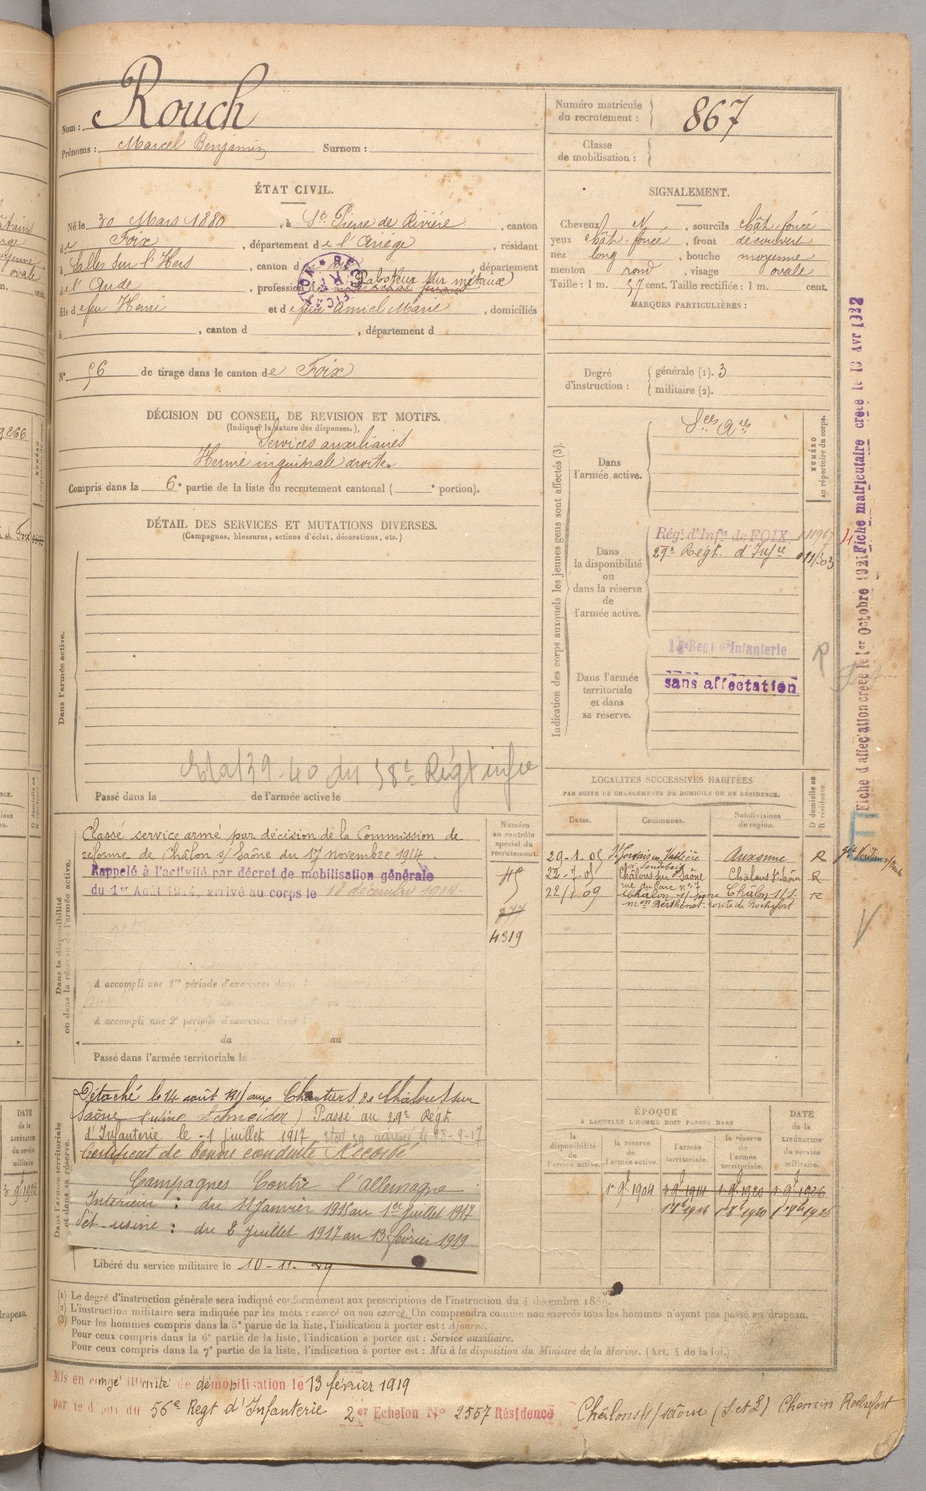 Nom : Rouch
Prénoms : Marcel Benjamin Surnom :
Numéro matricule du recrutement : 867
Classe de mobilisation :
ÉTAT CIVIL.
Né le 30 Mars 1880, à St Pierre de Rivière, canton
de Foix, département de l'Ariège, résidant
à Salles sur l'Hers, canton d département
de l'Aude, profession d Raboteur sur métaux
fils de feu Henri et de feue Amiel Marie, domiciliés
à , canton d , département d
N° 56 de tirage dans le canton de Foix
DÉCISION DU CONSEIL DE REVISION ET MOTIFS.
(Indiquer la nature des dispenses.)
Services auxiliaires
Hernie inguinale droite
Compris dans la 6e partie de la liste du recrutement cantonal ( e portion).
SIGNALEMENT.
Cheveux et sourcils chât. foncé
yeux chât. foncé, front découvert
nez long, bouche moyenne
menton rond, visage ovale
Taille : 1 m. 57 cent. Taille rectifiée : 1 m. cent.
MARQUES PARTICULIÈRES :
Degré d'instruction : générale (1). 3
militaire (2).
DÉTAIL DES SERVICES ET MUTATIONS DIVERSES.
(Campagnes, blessures, actions d'éclat, décorations, etc.)
Dans l'armée active.
Etat 39-40 du 58e Régt infie
Passé dans la de l'armée active le
Indication des corps auxquels les jeunes gens sont affectés (3).
NUMÉRO au répertoire du corps.
Dans l'armée active.
Ses Ares
Dans la disponibilité ou dans la réserve de l'armée active.
Régt d'Infie de FOIX
29e Regt d'Infie
Dans l'armée territoriale et dans sa réserve.
sans affectation
Fiche d'affectation créée le 1er Octobre 1921
Fiche matriculaire créée le 13 Avr 1922
LOCALITÉS SUCCESSIVES HABITÉES
PAR SUITE DE CHANGEMENTS DE DOMICILE OU DE RÉSIDENCE.
Dates. Communes. Subdivisions de région. D domicile ou R résidence.
29-1-05 St Gervais en Vallière Auxonne R
22-7-07 Châlons sur Saône Châlons s/Saône R
22/1-09 Châlon s/Saône Châlon s/S. R
Mon Berthenet route de Rochefort
Dans la disponibilité ou dans la réserve de l'armée active.
Numéro au contrôle spécial du recrutement.
Classé service armé par décision de la Commission de
réforme de Châlon s/ Saône du 17 novembre 1914
Rappelé à l'activité par décret de mobilisation générale
du 1er Août 1914, arrivé au corps le 18 décembre 1914
4319
A accompli une 1re période d'exercices dans l
A accompli une 2e période d'exercices dans l
du au
Passé dans l'armée territoriale le
Dans l'armée territoriale et dans sa réserve.
Détaché le 14 août 1915 aux Chantiers de Châlons sur
Saône (usine Schneider) Passé au 29e Régt
d'Infanterie le 1 juillet 1917
Certificat de bonne conduite Accordé
Campagnes Contre l'Allemagne
Intérieur : du 11 Janvier 1915 au 1er Juillet 1917
Dét-usine : du 2 Juillet 1917 au 13 février 1919
Libéré du service militaire le 10-11-29
ÉPOQUE
A LAQUELLE L'HOMME DOIT PASSER DANS
la disponibilité de l'armée active. la réserve de l'armée active. l'armée territoriale. la réserve de l'armée territoriale.
DATE de la LIBÉRATION du service militaire.
1er 9bre 1904 1 9bre 1914 1 9bre 1920 1 9bre 1926
(1) Le degré d'instruction générale sera indiqué conformément aux prescriptions de l'instruction du 4 décembre 188
(2) L'instruction militaire sera indiquée par les mots : exercé ou non exercé. On comprendra comme non exercés tous les hommes n'ayant pas passé au drapeau.
(3) Pour les hommes compris dans la 5e partie de la liste, l'indication à porter est : Ajourné.
Pour ceux compris dans la 6e partie de la liste, l'indication à porter est : Service auxiliaire.
Pour ceux compris dans la 7e partie de la liste, l'indication à porter est : Mis à la disposition du Ministre de la Marine. (Art. 4 de la loi.)
Mis en congé illimité de démobilisation le 13 février 1919
par le dépôt du 56e Regt d'Infanterie 2er Echelon N° 2557 Résidence Châlons/s/saône (S et L) Chemin Rochefort